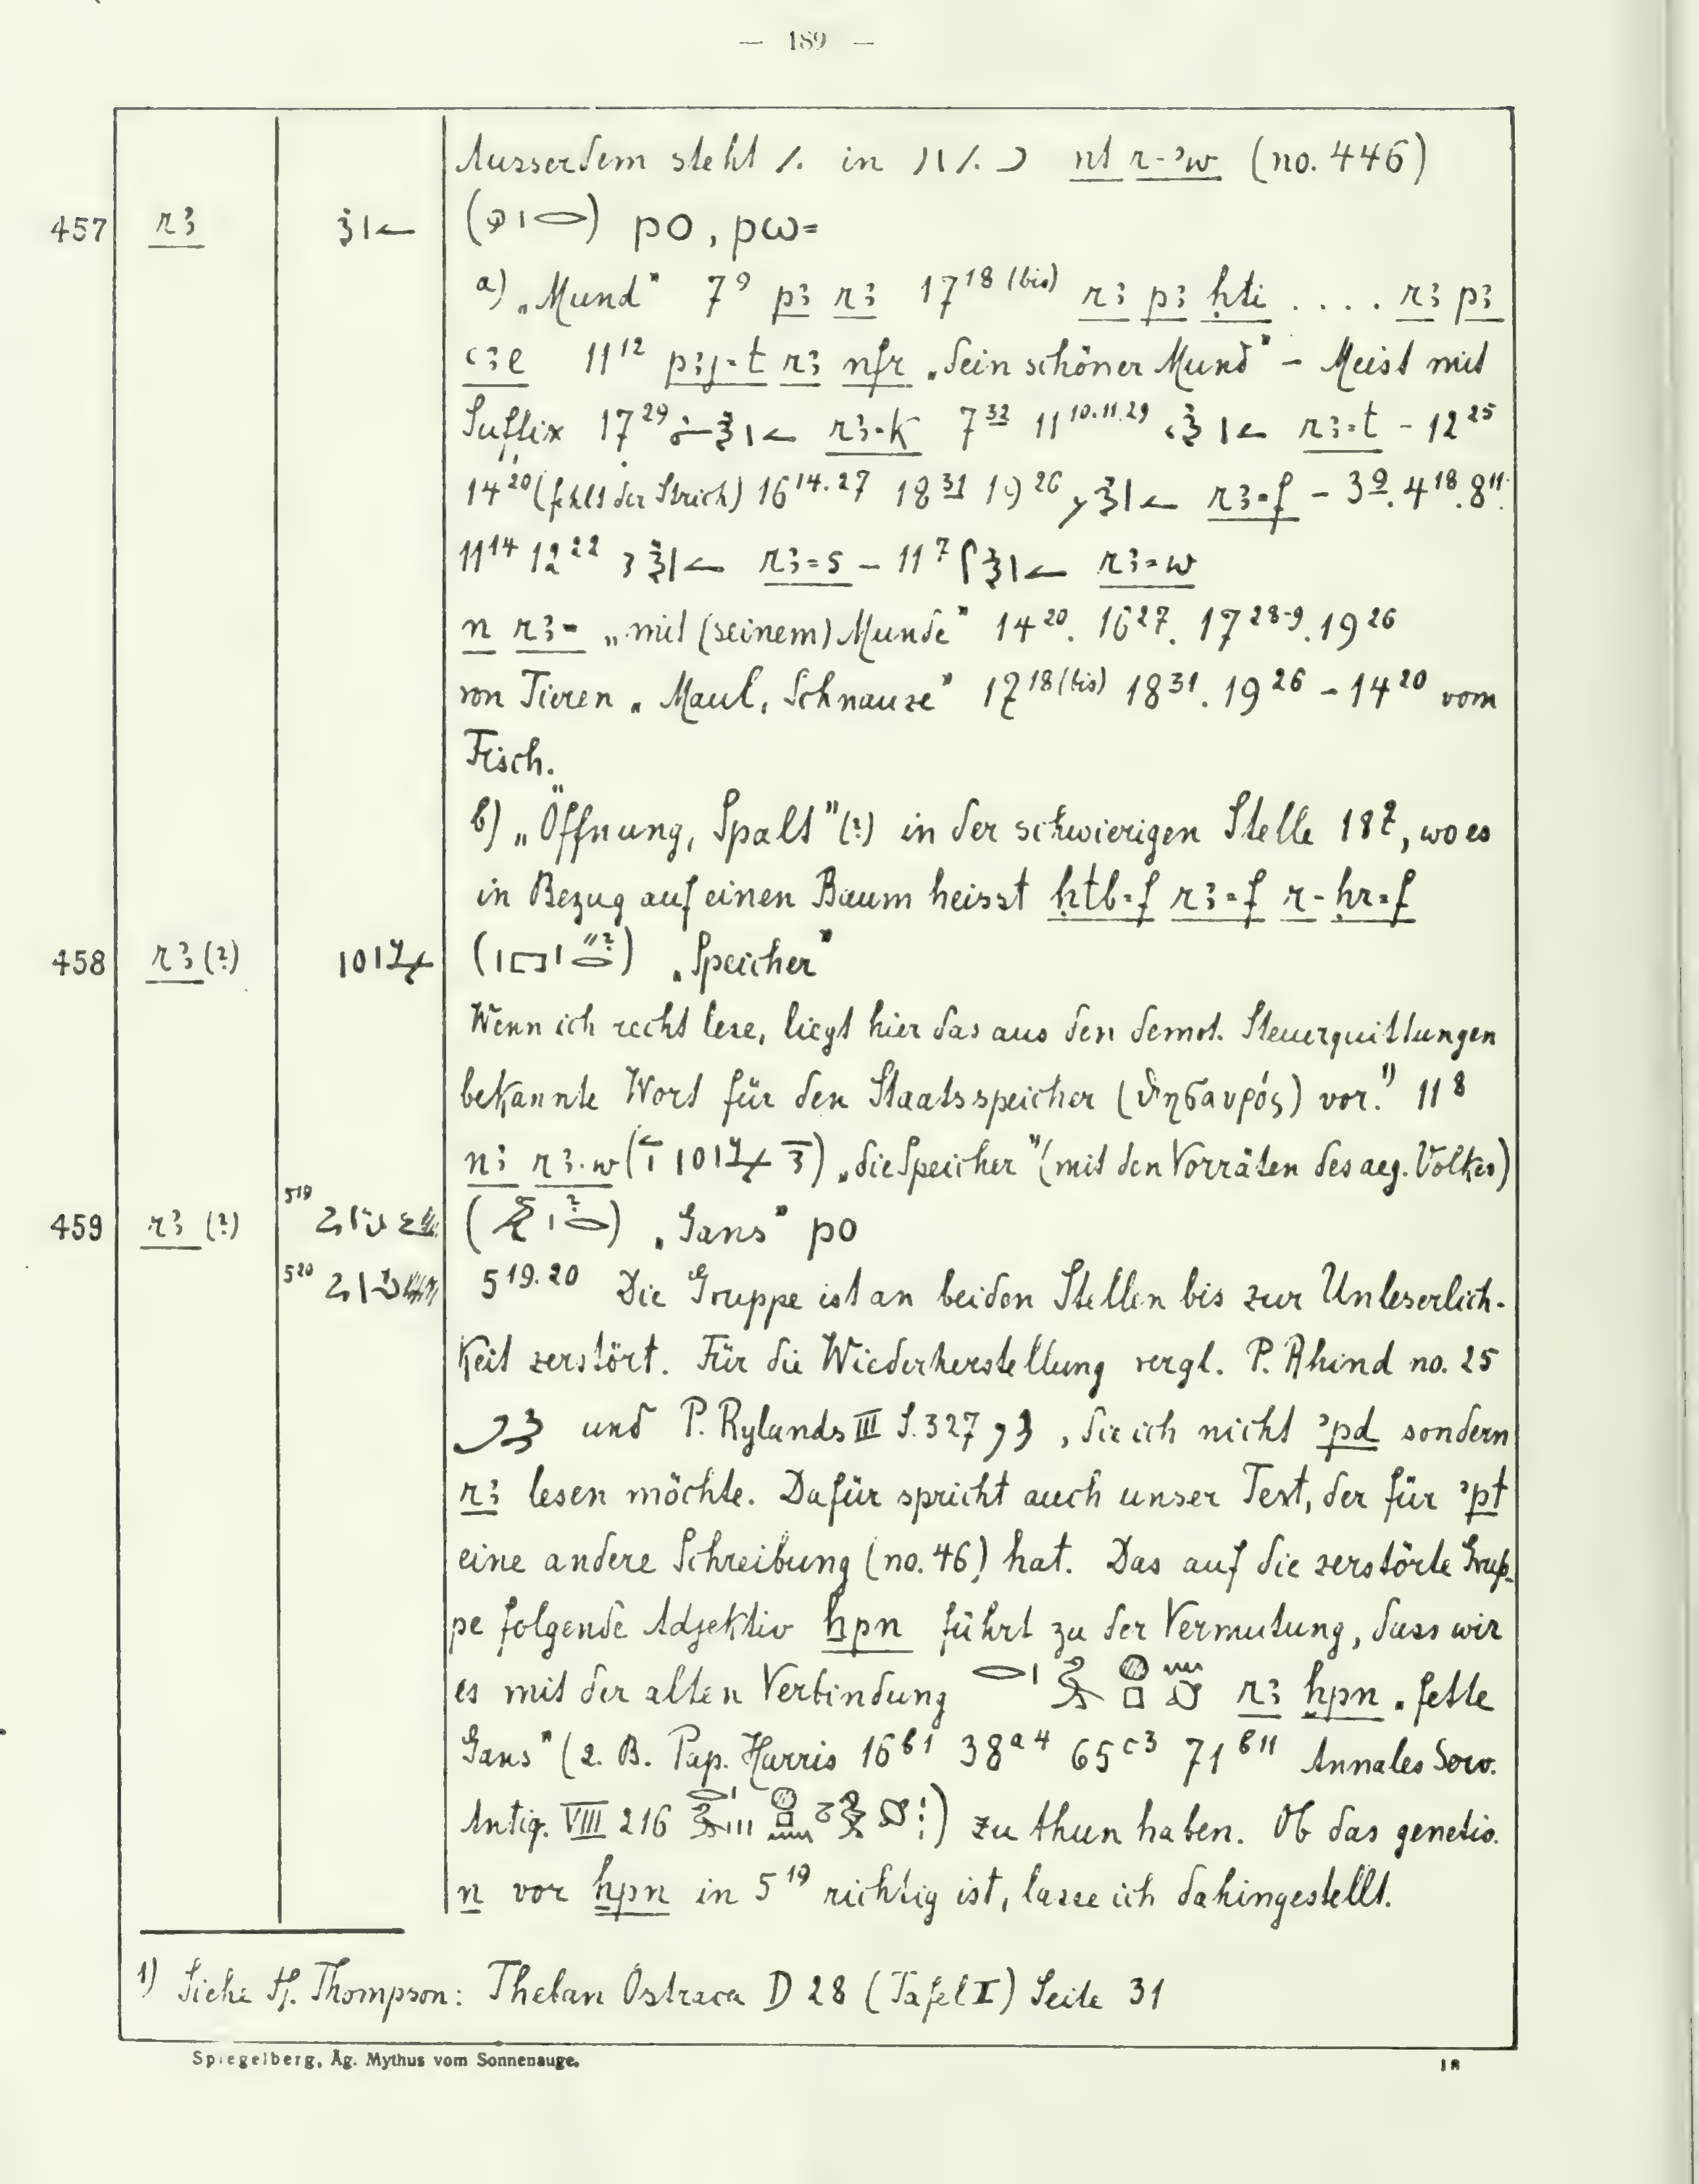 — 189 —
Ausserdem steht in nt r-ꜣw (no. 446)
457 rꜣ ( ) ⲣⲟ, ⲣⲱ=
a) „Mund" 7⁹ pꜣ rꜣ 17¹⁸ ⁽ᵇⁱˢ⁾ rꜣ pꜣ ḥti . . . . rꜣ pꜣ
11¹² pꜣj·t rꜣ nfr „dein schöner Mund" – Meist mit
Suffix 17²⁹ rꜣ·k 7³² 11¹⁰·¹¹·²⁹ rꜣ·t – 12²⁵
14²⁰ (fehlt der Strich) 16¹⁴·²⁷ 18³¹ 19²⁶ rꜣ=f – 3⁹. 4¹⁸. 8¹¹.
11¹⁴ 12²² rꜣ=s – 11⁷ rꜣ=w
n rꜣ= „mit (seinem) Munde" 14²⁰. 16²⁷. 17²⁸⁻⁹. 19²⁶
von Tieren „Maul, Schnauze" 17¹⁸ ⁽ᵇⁱˢ⁾ 18³¹. 19²⁶ – 14²⁰ vom
Fisch.
b) „Öffnung, Spalt" (?) in der schwierigen Stelle 18⁷, wo es
in Bezug auf einen Baum heisst ḥtb=f rꜣ=f r-ḥr=f
458 rꜣ (?) ( ) „Speicher"
Wenn ich recht lese, liegt hier das aus den demot. Steuerquittungen
bekannte Wort für den Staatsspeicher (θησαυρός) vor.¹⁾ 11⁸
nꜣ rꜣ·w ( ) „die Speicher" (mit den Vorräten des aeg. Volkes)
459 rꜣ (?) 5¹⁹ ( ) „Gans" ⲣⲟ
5²⁰ 5¹⁹·²⁰ Die Gruppe ist an beiden Stellen bis zur Unleserlich-
keit zerstört. Für die Wiederherstellung vergl. P. Rhind no. 25
und P. Rylands III S. 327 , die ich nicht ꜣpd sondern
rꜣ lesen möchte. Dafür spricht auch unser Text, der für ꜣpt
eine andere Schreibung (no. 46) hat. Das auf die zerstörte Grup-
pe folgende Adjektiv ḫpn führt zu der Vermutung, dass wir
es mit der alten Verbindung rꜣ ḫpn „fette
Gans" (z. B. Pap. Harris 16ᵇ¹ 38ᵃ⁴ 65ᶜ³ 71ᵇ¹¹ Annales Serv.
Antiq. VIII 216 ) zu thun haben. Ob das genetiv.
n vor ḫpn in 5¹⁹ richtig ist, lasse ich dahingestellt.
1) Siehe H. Thompson: Theban Ostraca D 28 (Tafel I) Seite 31
Spiegelberg, Äg. Mythus vom Sonnenauge. 18